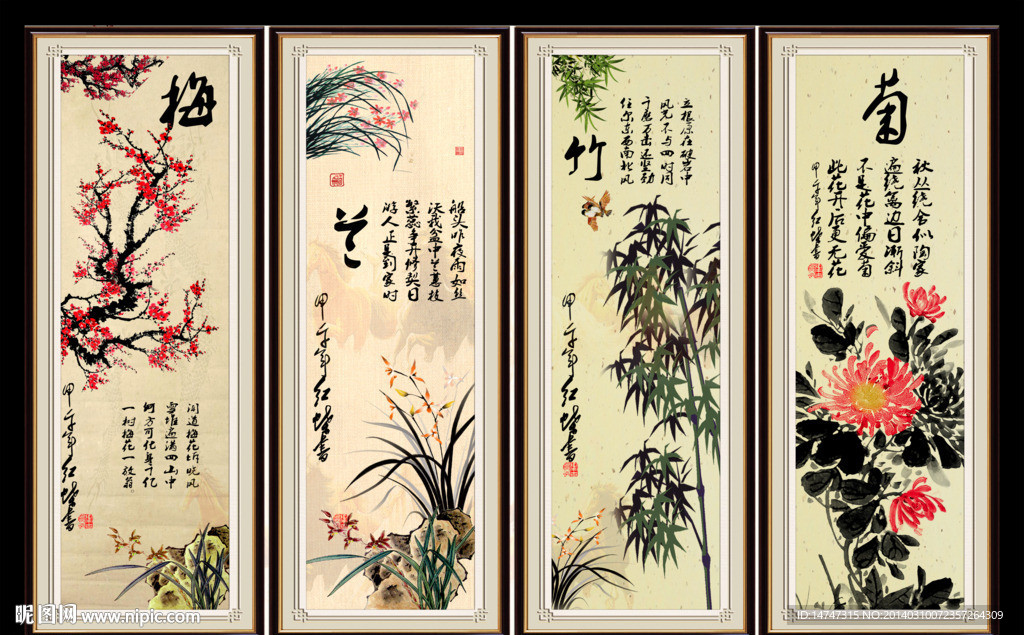 梅
闻道梅花坼晓风
雪堆遍满四山中
何方可化身千亿
一树梅花一放翁。
甲午年红
书
兰
船头昨夜雨如丝
沃我盆中兰蕙枝
繁蕊争开修禊日
游人正是到家时
甲午年红
书
竹
立根原在破岩中
风光不与四时同
千磨万击还坚劲
任尔东西南北风
甲午年红
书
菊
秋丛绕舍似陶家
遍绕篱边日渐斜
不是花中偏爱菊
此花开后更无花
甲午年红
书
昵图网 www.nipic.com
ID:14747315 NO:20140310072357264309